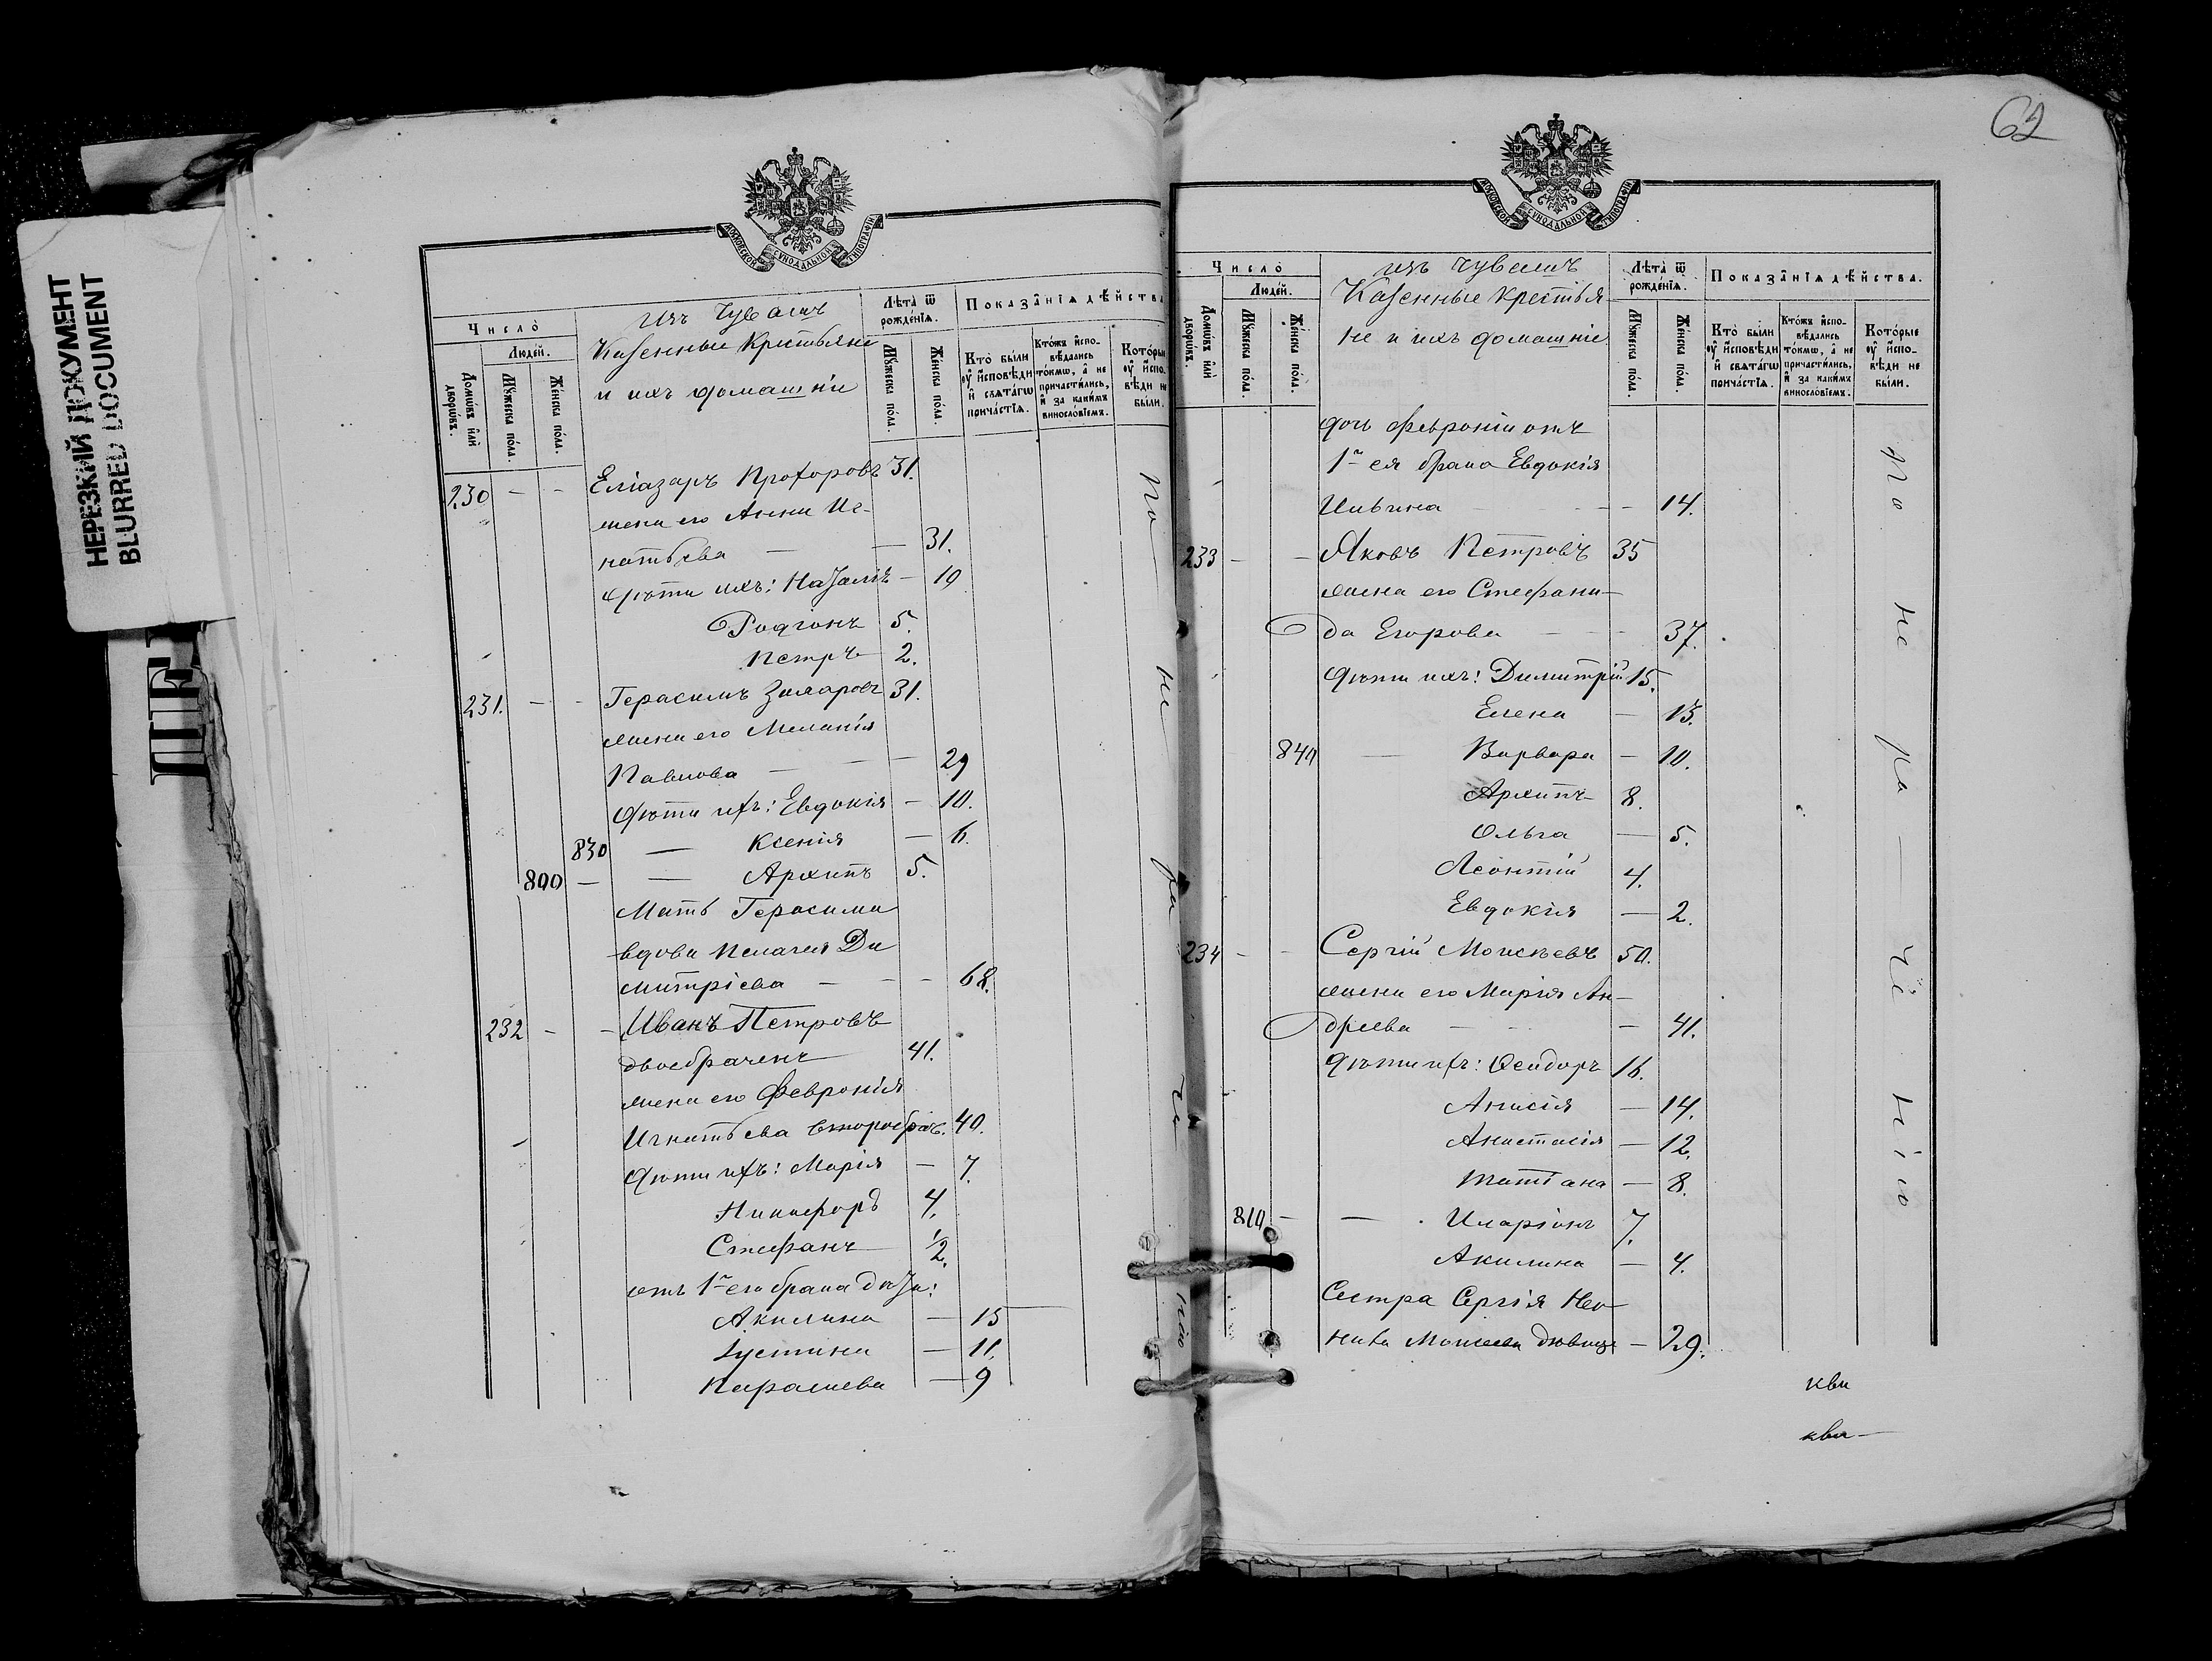 НЕРЕЗКИЙ ДОКУМЕНТ
BLURRED DOCUMENT
МОСКОВСКОЙ СѴНОДАЛЬНОЙ ТИПОГРАФІИ
Число̀
Людей.
Домѡвъ и҆лѝ дворѡвъ.
Мꙋжеска по́ла.
Же́нска по́ла.
изъ Чувашъ
Казенные Крестьяне
и ихъ домашніе
Лѣта̀ ѿ рожде́нїѧ.
Мꙋжеска по́ла.
Же́нска по́ла.
Показа̑нїѧ дѣ́йства
Кто̀ бы́ли ᲂу҆ и҆сповѣди и҆ свѧта́гѡ прича́стїѧ.
Кто́жъ и҆спо-вѣдались то́кмѡ, а҆ не причасти́лись, и҆ за каки́мъ винословїемъ.
Кото́рые ᲂу҆ и҆спо-вѣди не бы́ли.
230 - - Еліазаръ Прохоровъ 31.
жена его Анна Иг-
натьева — — 31.
Дѣти ихъ: - 10
Родіонъ 5.
Петръ 2.
231. - - Герасимъ Захаровъ 31.
жена его Меланія
Павлова — — 29
Дѣти ихъ: Евдокія - 10.
830 — Ксенія — 6.
800 — — Архипъ 5.
Мать Герасима
вдова Пелагея Ди
митріева — - - 68.
232 - - Иванъ Петровъ
двоебраченъ 41.
жена его Февронія
Игнатьева второбрач. 40.
Дѣти ихъ: Марія — 7.
Никифоръ 4.
Стефанъ 1/2.
отъ 1го его брака дѣти:
Акилина — 15
Іустина — 11.
Параскева — 9
по не ра че нію
62
МОСКОВСКОЙ СѴНОДАЛЬНОЙ ТИПОГРАФІИ
Число̀
Людей.
Домѡвъ и҆лѝ дворѡвъ.
Мꙋжеска по́ла.
Же́нска по́ла.
изъ Чувашъ
Казенные Крестья
не и ихъ домашніе
Лѣта̀ ѿ рожде́нїѧ.
Мꙋжеска по́ла.
Же́нска по́ла.
Показа̑нїѧ дѣ́йства.
Кто̀ бы́ли ᲂу҆ и҆сповѣди и҆ свѧта́гѡ прича́стїѧ.
Кто́жъ и҆спо-вѣдались то́кмѡ, а҆ не причасти́лись, и҆ за каки́мъ винословїемъ.
Кото́рые ᲂу҆ и҆спо-вѣди не бы́ли.
дочь Февроніи отъ
1го ея брака Евдокія
Ильина - - - 14.
233 - - Яковъ Петровъ 35
жена его Степани-
да Егорова — - 37.
Дѣти ихъ: Димитрій 15.
Елена — 13.
840 — Варвара — 10.
Архипъ 8.
Ольга — 5.
Леонтій 4.
Евдокія — 2.
234 - - Сергій Моисѣевъ 50.
жена его Марія Ан-
дреева — — 41.
Дѣти ихъ: Ѳеодоръ 16.
Анисія — 14.
Анастасія — 12.
Татіана — 8.
810 — — Иларіонъ 7.
Акилина — 4.
Сестра Сергія Нео-
нила Моисеева дѣвица — 29.
по не ра — че нію